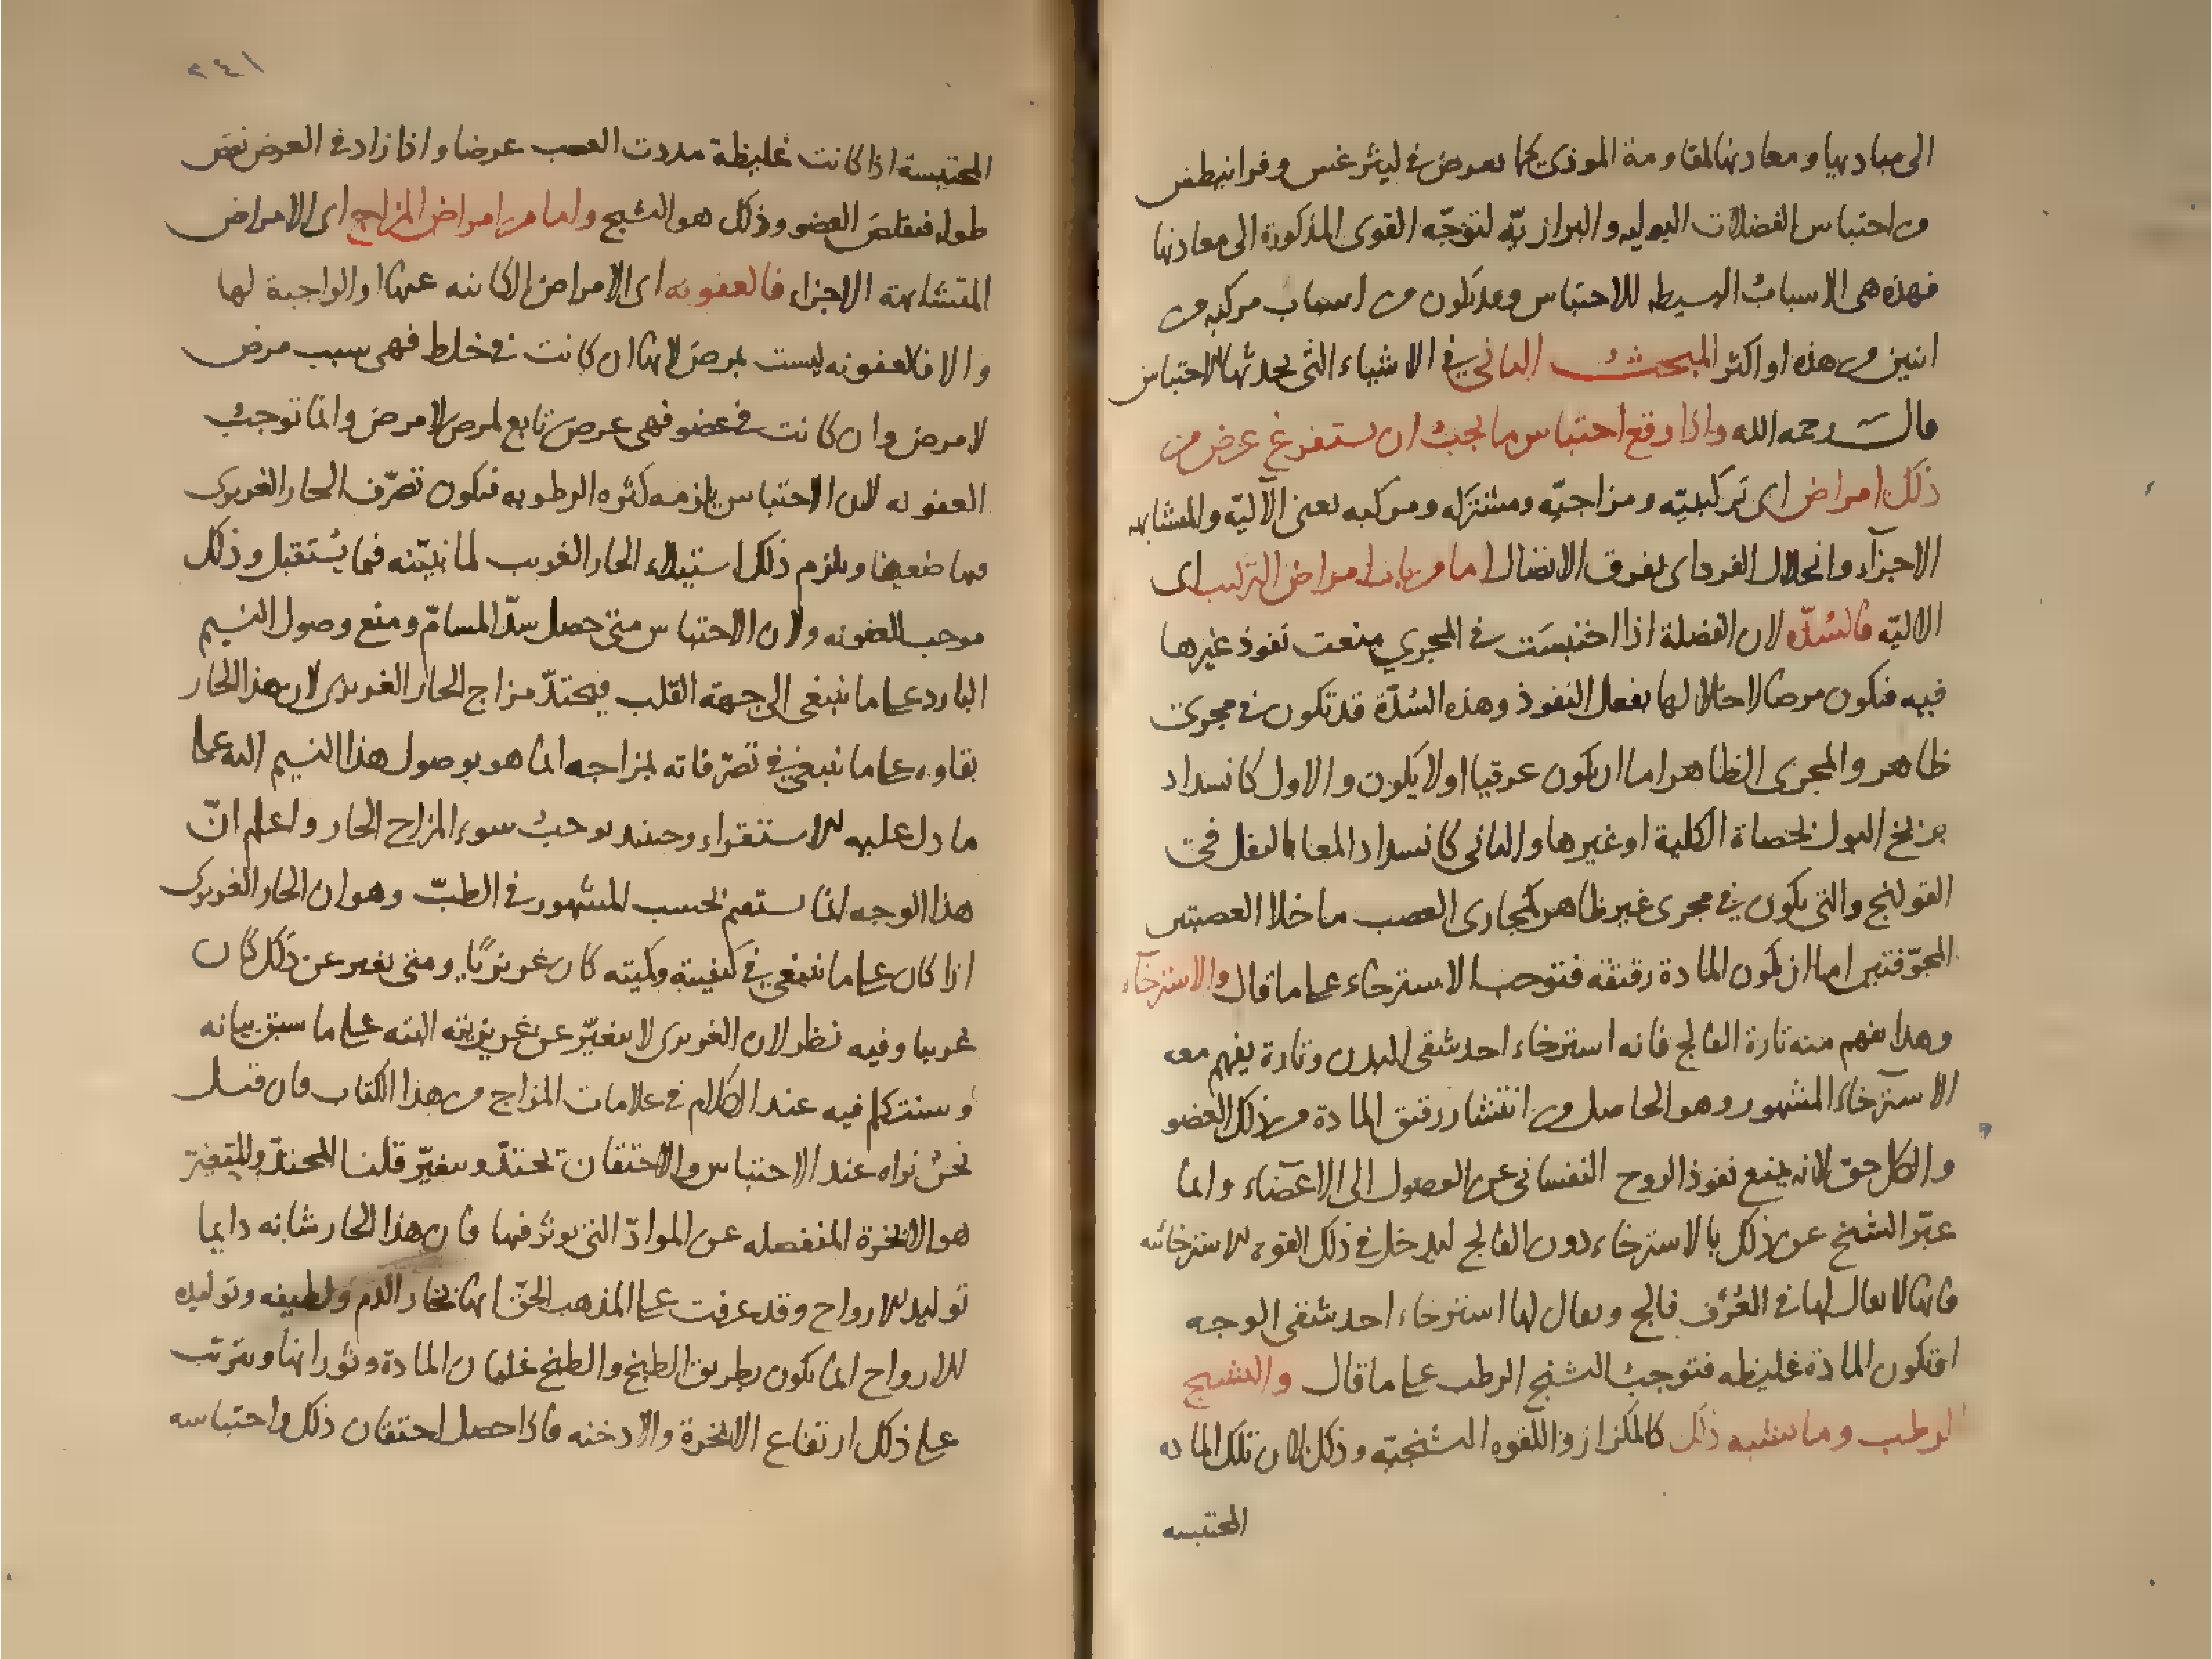 الى مباديها ومعادنها لمقاومة الموذى كما يعرض في ليثرغس وفرانيطس
و احتباس الفضلات البوليه والبرازيّه لتوجّه القوى المذكورة الى معادنها
فهذه هى الاسبابُ البسيطه للاحتباس وقد تكون من اسباب مركبه من
اثنين من هذه او اكثر المبحث الثاني في الاشياء التي يحدثها الاحتباس
قال الشيخ رحمه الله واذا وقع احتباس ما يجبُ ان يستفرغ عرض من
ذلك امراض اى تركيبيّه ومزاجيّه ومشتركه ومركبه يعنى الآليّه والمتشابهه
الاجزآء وانحلال الفرد اى تفرق الاتصال اما من باب امراض التركيب اى
الاليّه فالسُدّه لان الفضلة اذا احتبسَت في المجري منعت نفوذ غيرها
فيه فتكون مرضا لاخلالها بفعل النفوذ وهذه السُدّة قد تكون في مجرى
ظاهر والمجرى الظاهر اما ان يكون عرقيا اولا يكون والاول كانسداد
بربخ البول بحصاة الكلية او غيرها والثانى كانسداد المعا بالثفل في
القولنج والتى تكون في مجرى غير ظاهر كمجارى العصب ما خلا العصبتين
المجوّفتين اما ان تكون المادة رقيقه فتوجب الاسترخاء على ما قال والاسترخآء
وهذا يفهم منه تارة الفالج فانه استرخاء احد شقى البدن وتارة يفهم معه
الاسترخآء المشهور وهو الحاصل من انتشار رقيق المادة من ذلك العضو
والكل حق لانه يمنع نفوذ الروح النفسانى عن الوصول الى الاعضآء وانما
عبّر الشيخ عن ذلك بالاسترخاء دون الفالج ليدخل في ذلك اللقوه الاسترخائيه
فانها لا يقال لها في العُرْف فالج ويقال لها استرخاء احد شقى الوجه
او تكون المادة غليظه فتوجبُ التشنج الرطب على ما قال والتشنج
الرطب وما يشبه ذلك كالكزاز واللقوه التشنجيّه وذلك لان تلك الماده
المحتبسه
٢٤١
المحتبسة اذا كانت غليظة مددت العصب عرضا واذا زاد في العرض نقص
طوله فيقلص العضو وذلك هو التشنج واما من امراض المزاج اى الامراض
المتشابهة الاجزاء فالعفونه اى الامراض الكائنه عنها او الواجبة لها
والا فالعفونه ليست بمرض لانها ان كانت في خلط فهى سبب مرض
لا مرض وان كانت في عضو فهى عرض تابع لمرض لا مرض وانما توجبُ
العفونه لان الاحتباس يلزمه كثره الرطوبه فيكون تصرّف الحار الغريزى
فيها ضعيفا ويلزم ذلك استيلاء الحار الغريب لما نبيّنه فيما يُستقبل وذلك
موجب للعفونه ولان الاحتباس متى حصل سدّ المسامّ ومنع وصول النسيم
البارد على ما ينبغى الى جهة القلب فيحتدّ مزاج الحار الغريزى لان هذا الحار
بقاوه على ما ينبغي في تصرّفاته بمزاجه انما هو بوصول هذا النسيم اليه على
ما دل عليه الاستقراء وحينئذ يوجبُ سوء المزاج الحار واعلم انّ
هذا الوجه انما يستقيم بحسب المشهور في الطبّ وهو ان الحار الغريزى
اذا كان على ما ينبغي في كيفيته وكميته كان غريزيًا ومتى تغير عن ذلك كان
غريبا وفيه نظر لان الغريزى لا يتغيّر عن غريزيته البته على ما سبق بيانه
وسنتكلم فيه عند الكلام في علامات المزاج من هذا الكتاب فان قيل
نحنُ نراه عند الاحتباس والاحتقان يحتدّ ويتغيّر قلنا المحتدّ والمتغيّر
هو الابخرة المنفصله عن الموادّ التى يوثر فيها فان هذا الحار شانه دايما
توليد الارواح وقد عرفت على المذهب الحقّ انها بخار الدم ولطيفه وتوليده
للارواح انما يكون بطريق الطبخ والطبخ غليان المادة وثورانها ويترتب
على ذلك ارتفاع الابخرة والادخنه فاذا حصل احتقان ذلك واحتباسه